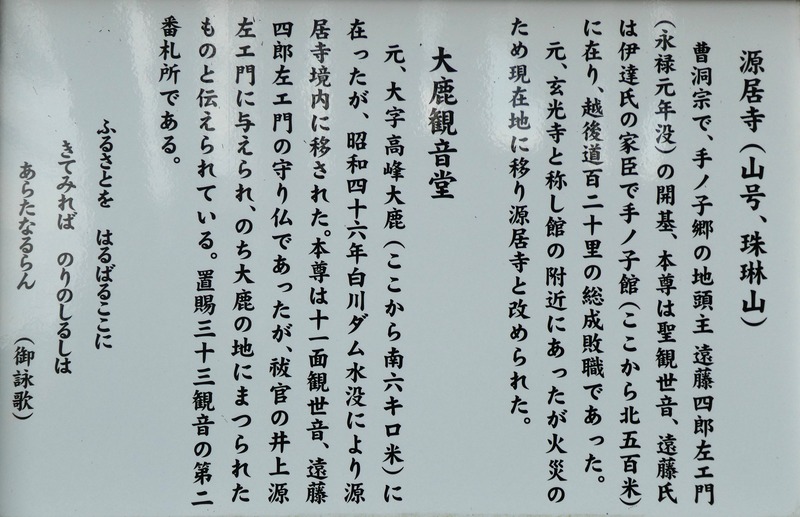 源居寺(山号、珠琳山)
曹洞宗で、手ノ子郷の地頭主 遠藤四郎左エ門
(永禄元年没)の開基、本尊は聖観世音、遠藤氏
は伊達氏の家臣で手ノ子館(ここから北五百米)
に在り、越後道百二十里の総成敗職であった。
元、玄光寺と称し館の附近にあったが火災の
ため現在地に移り源居寺と改められた。
大鹿観音堂
元、大字高峰大鹿(ここから南六キロ米)に
在ったが、昭和四十六年白川ダム水没により源
居寺境内に移された。本尊は十一面観世音、遠藤
四郎左エ門の守り仏であったが、祓官の井上源
左エ門に与えられ、のち大鹿の地にまつられた
ものと伝えられている。置賜三十三観音の第二
番札所である。
ふるさとを はるばるここに
きてみれば のりのしるしは
あらたなるらん (御詠歌)